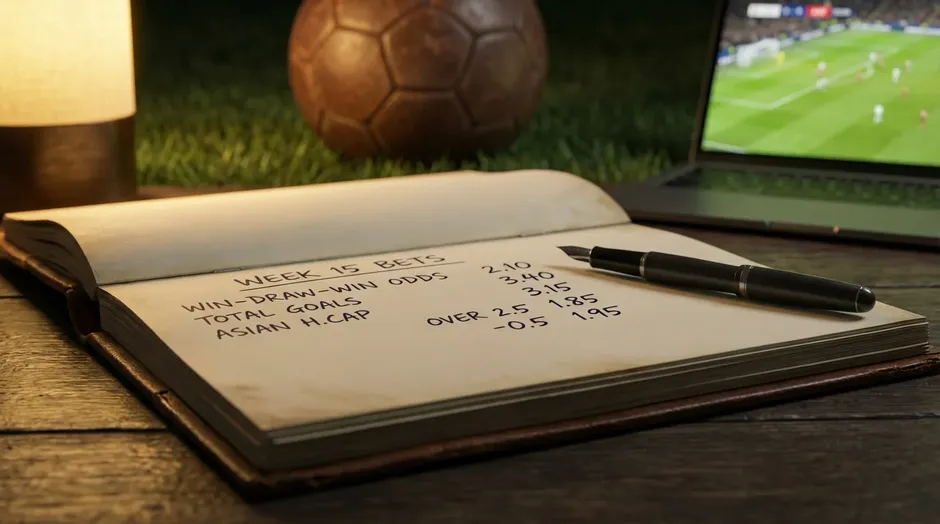 WEEK 15 BETS
WIN-DRAW-WIN ODDS 2.10
3.40
3.15
TOTAL GOALS OVER 2.5 1.85
ASIAN H.CAP -0.5 1.95